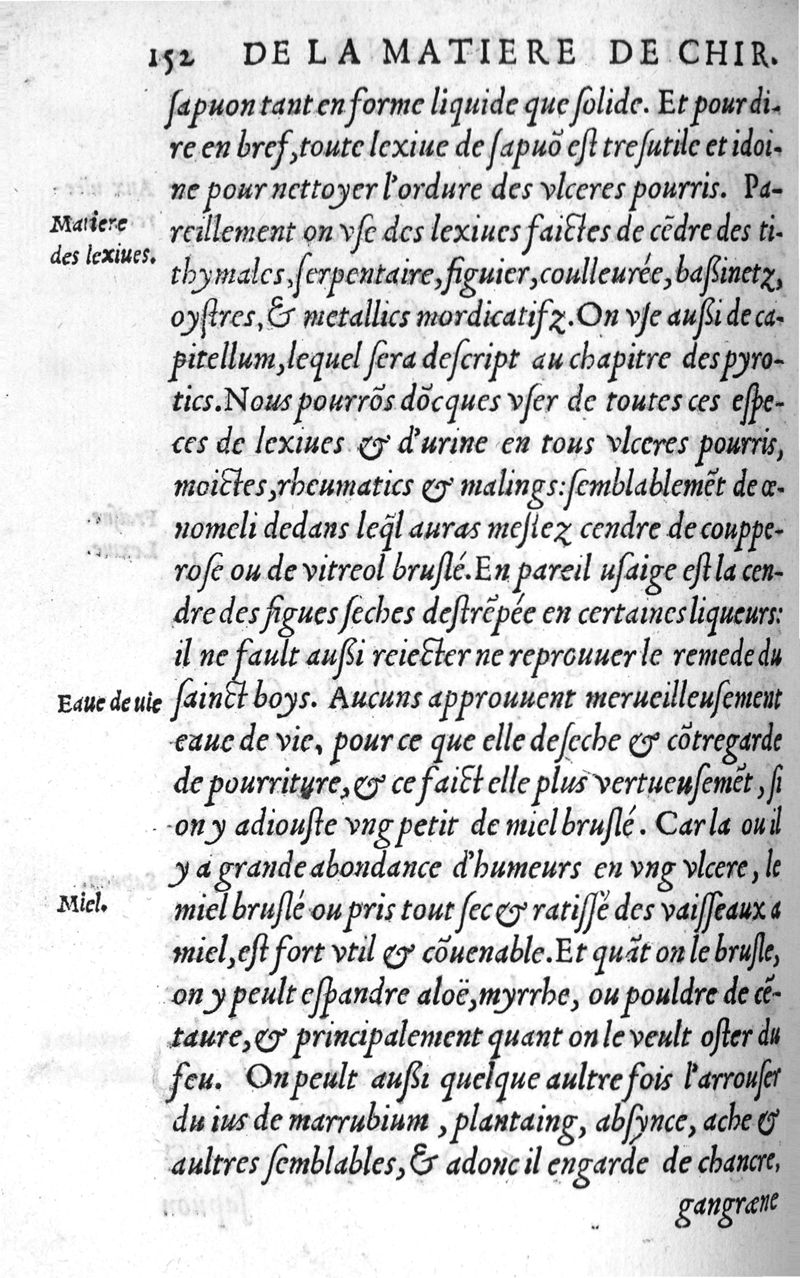 152 DE LA MATIERE DE CHIR.
ſapuon tant en forme liquide que ſolide. Et pour di-
re en bref, toute lexiue de ſapuõ eſt treſutile et idoi-
ne pour nettoyer l'ordure des vlceres pourris. Pa-
Matiere
des lexiues.
reillement on vſe des lexiues faictes de cẽdre des ti-
thymales, ſerpentaire, figuier, coulleurée, baſsinetz,
oyſtres, & metallics mordicatifz. On vſe auſsi de ca-
pitellum, lequel ſera deſcript au chapitre des pyro-
tics. Nous pourrõs dõcques vſer de toutes ces eſpe-
ces de lexiues & d'urine en tous vlceres pourris,
moictes, rheumatics & malings: ſemblablemẽt de œ-
nomeli dedans leq̃l auras meſlez cendre de couppe-
roſe ou de vitreol bruſlé. En pareil uſaige eſt la cen-
dre des figues ſeches deſtrẽpée en certaines liqueurs:
il ne fault auſsi reiecter ne reprouuer le remede du
Eaue de uie
ſainct boys. Aucuns approuuent merueilleuſement
eaue de vie, pour ce que elle deſeche & cõtregarde
de pourriture, & ce faict elle plus vertueuſemẽt, ſi
on y adiouſte vng petit de miel bruſlé. Car la ou il
y a grande abondance d'humeurs en vng vlcere, le
Miel.
miel bruſlé ou pris tout ſec & ratiſſé des vaiſſeaux a
miel, eſt fort vtil & cõuenable. Et quãt on le bruſle,
on y peult eſpandre aloë, myrrhe, ou pouldre de cẽ-
taure, & principalement quant on le veult oſter du
feu. On peult auſsi quelque aultre fois l'arrouſer
du ius de marrubium, plantaing, abſynce, ache &
aultres ſemblables, & adonc il engarde de chancre,
gangræne